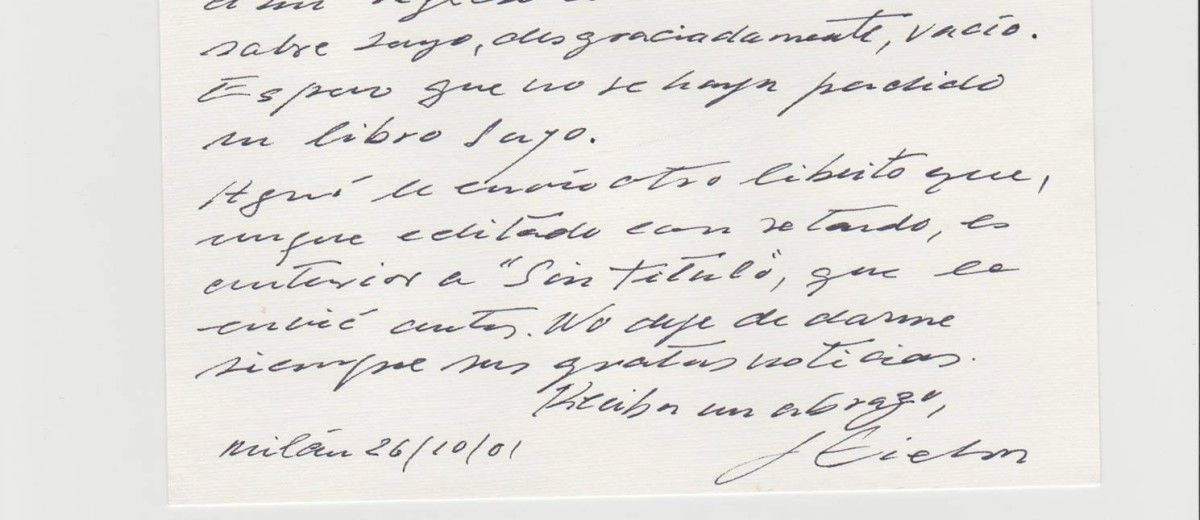 a mi regreso
sobre suyo, desgraciadamente, vacío.
Espero que no se haya perdido
un libro suyo.
Aquí le envío otro librito que,
aunque editado con retardo, es
anterior a "Sin título", que le
envié antes. No deje de darme
siempre sus gratas noticias.
Reciba un abrazo,
Milán 26/10/01